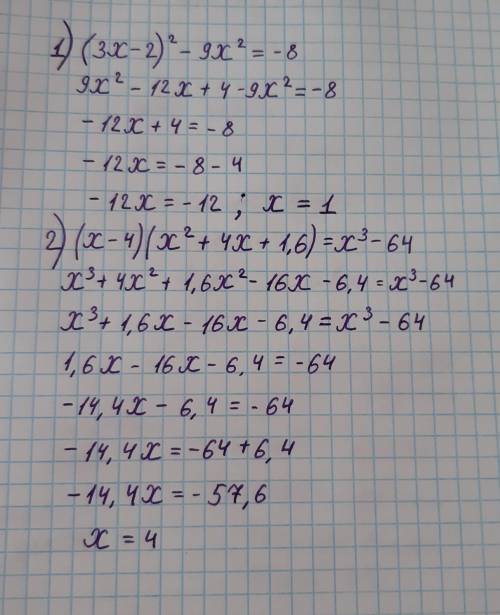 1) (3x-2)² - 9x² = -8
9x² - 12x + 4 - 9x² = -8
- 12x + 4 = -8
- 12x = - 8 - 4
- 12x = -12 ; x = 1
2) (x-4)(x² + 4x + 1,6) = x³ - 64
x³ + 4x² + 1,6x² - 16x - 6,4 = x³ - 64
x³ + 1,6x - 16x - 6,4 = x³ - 64
1,6x - 16x - 6,4 = -64
-14,4x - 6,4 = - 64
-14,4x = -64 + 6,4
-14,4x = - 57,6
x = 4